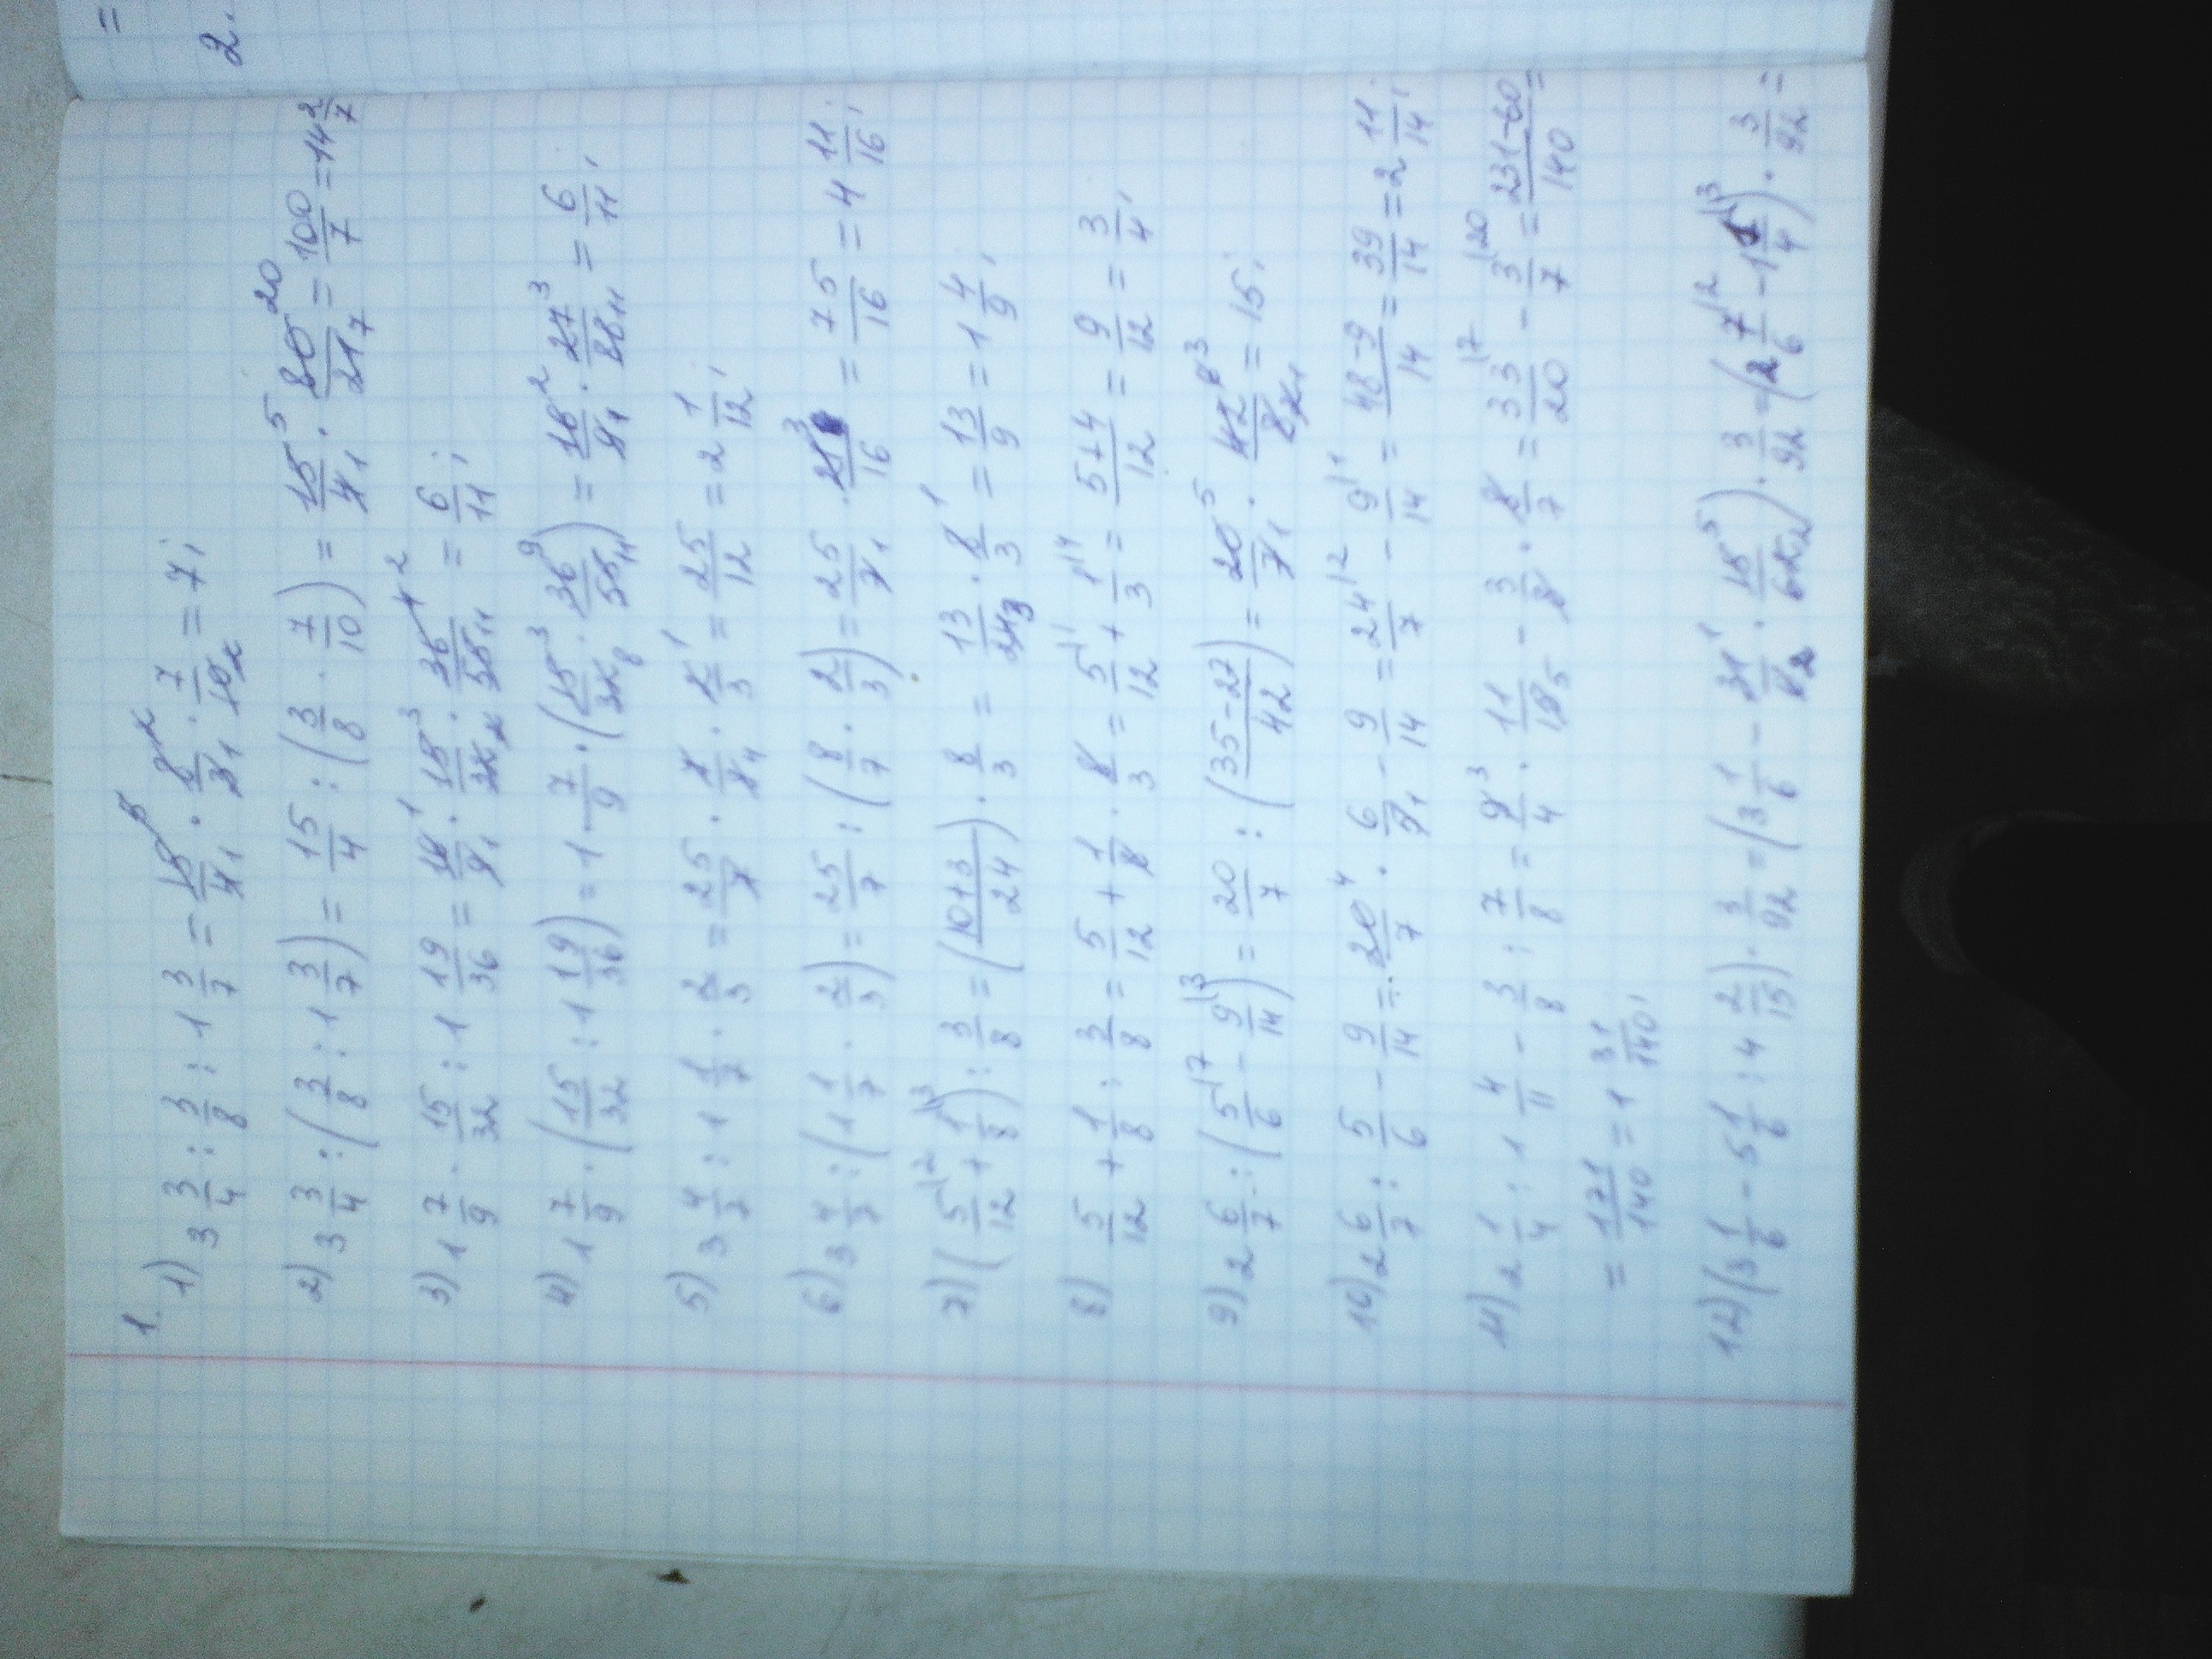 1.
1) 3 3/4 : 3/8 : 1 3/7 = 15/4 · 8/3 · 7/10 = 7;
2) 3 3/4 : (3/8 : 1 3/7) = 15/4 : (3/8 · 7/10) = 15/4 · 80/21 = 100/7 = 14 2/7
3) 1 7/9 · 15/32 : 1 19/36 = 16/9 · 15/32 · 36/55 = 6/11;
4) 1 7/9 · (15/32 : 1 19/36) = 1 7/9 · (15/32 · 36/55) = 16/9 · 27/88 = 6/11;
5) 3 4/7 : 1 1/7 · 2/3 = 25/7 · 7/8 · 2/3 = 25/12 = 2 1/12;
6) 3 4/7 : (1 1/7 · 2/3) = 25/7 : (8/7 · 2/3) = 25/7 · 21/16 = 75/16 = 4 11/16;
7) (5/12 + 1/8) : 3/8 = (10+3/24) · 8/3 = 13/24 · 8/3 = 13/9 = 1 4/9;
8) 5/12 + 1/8 : 3/8 = 5/12 + 1/8 · 8/3 = 5/12 + 1/3 = 5+4/12 = 9/12 = 3/4;
9) 2 6/7 : (5/6 - 9/14) = 20/7 : (35-27/42) = 20/7 · 42/8 = 15;
10) 2 6/7 : 5/6 - 9/14 = 20/7 · 6/5 - 9/14 = 24/7 - 9/14 = 48-9/14 = 39/14 = 2 11/14;
11) 2 1/4 : 1 4/11 - 3/8 : 7/8 = 9/4 · 11/15 - 3/8 · 8/7 = 33/20 - 3/7 = 231-60/140 =
= 171/140 = 1 31/140;
12) (3 1/6 - 5 1/6 : 4 2/15) · 3/92 = (3 1/6 - 31/6 · 15/62) · 3/92 = (2 7/6 - 1 1/4) · 3/92 =
=
2.